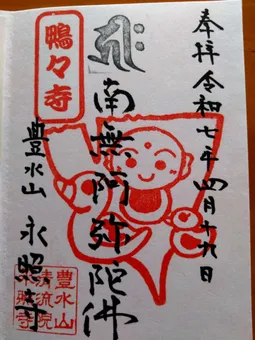 奉拝 令和七年四月十九日
南無阿弥陀佛
鴨々寺
豊水山 永照寺
豊水山
清流院
永照寺